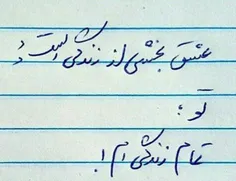 عشق بخشی از زندگی است و
تو :
تمام زندگی ام !